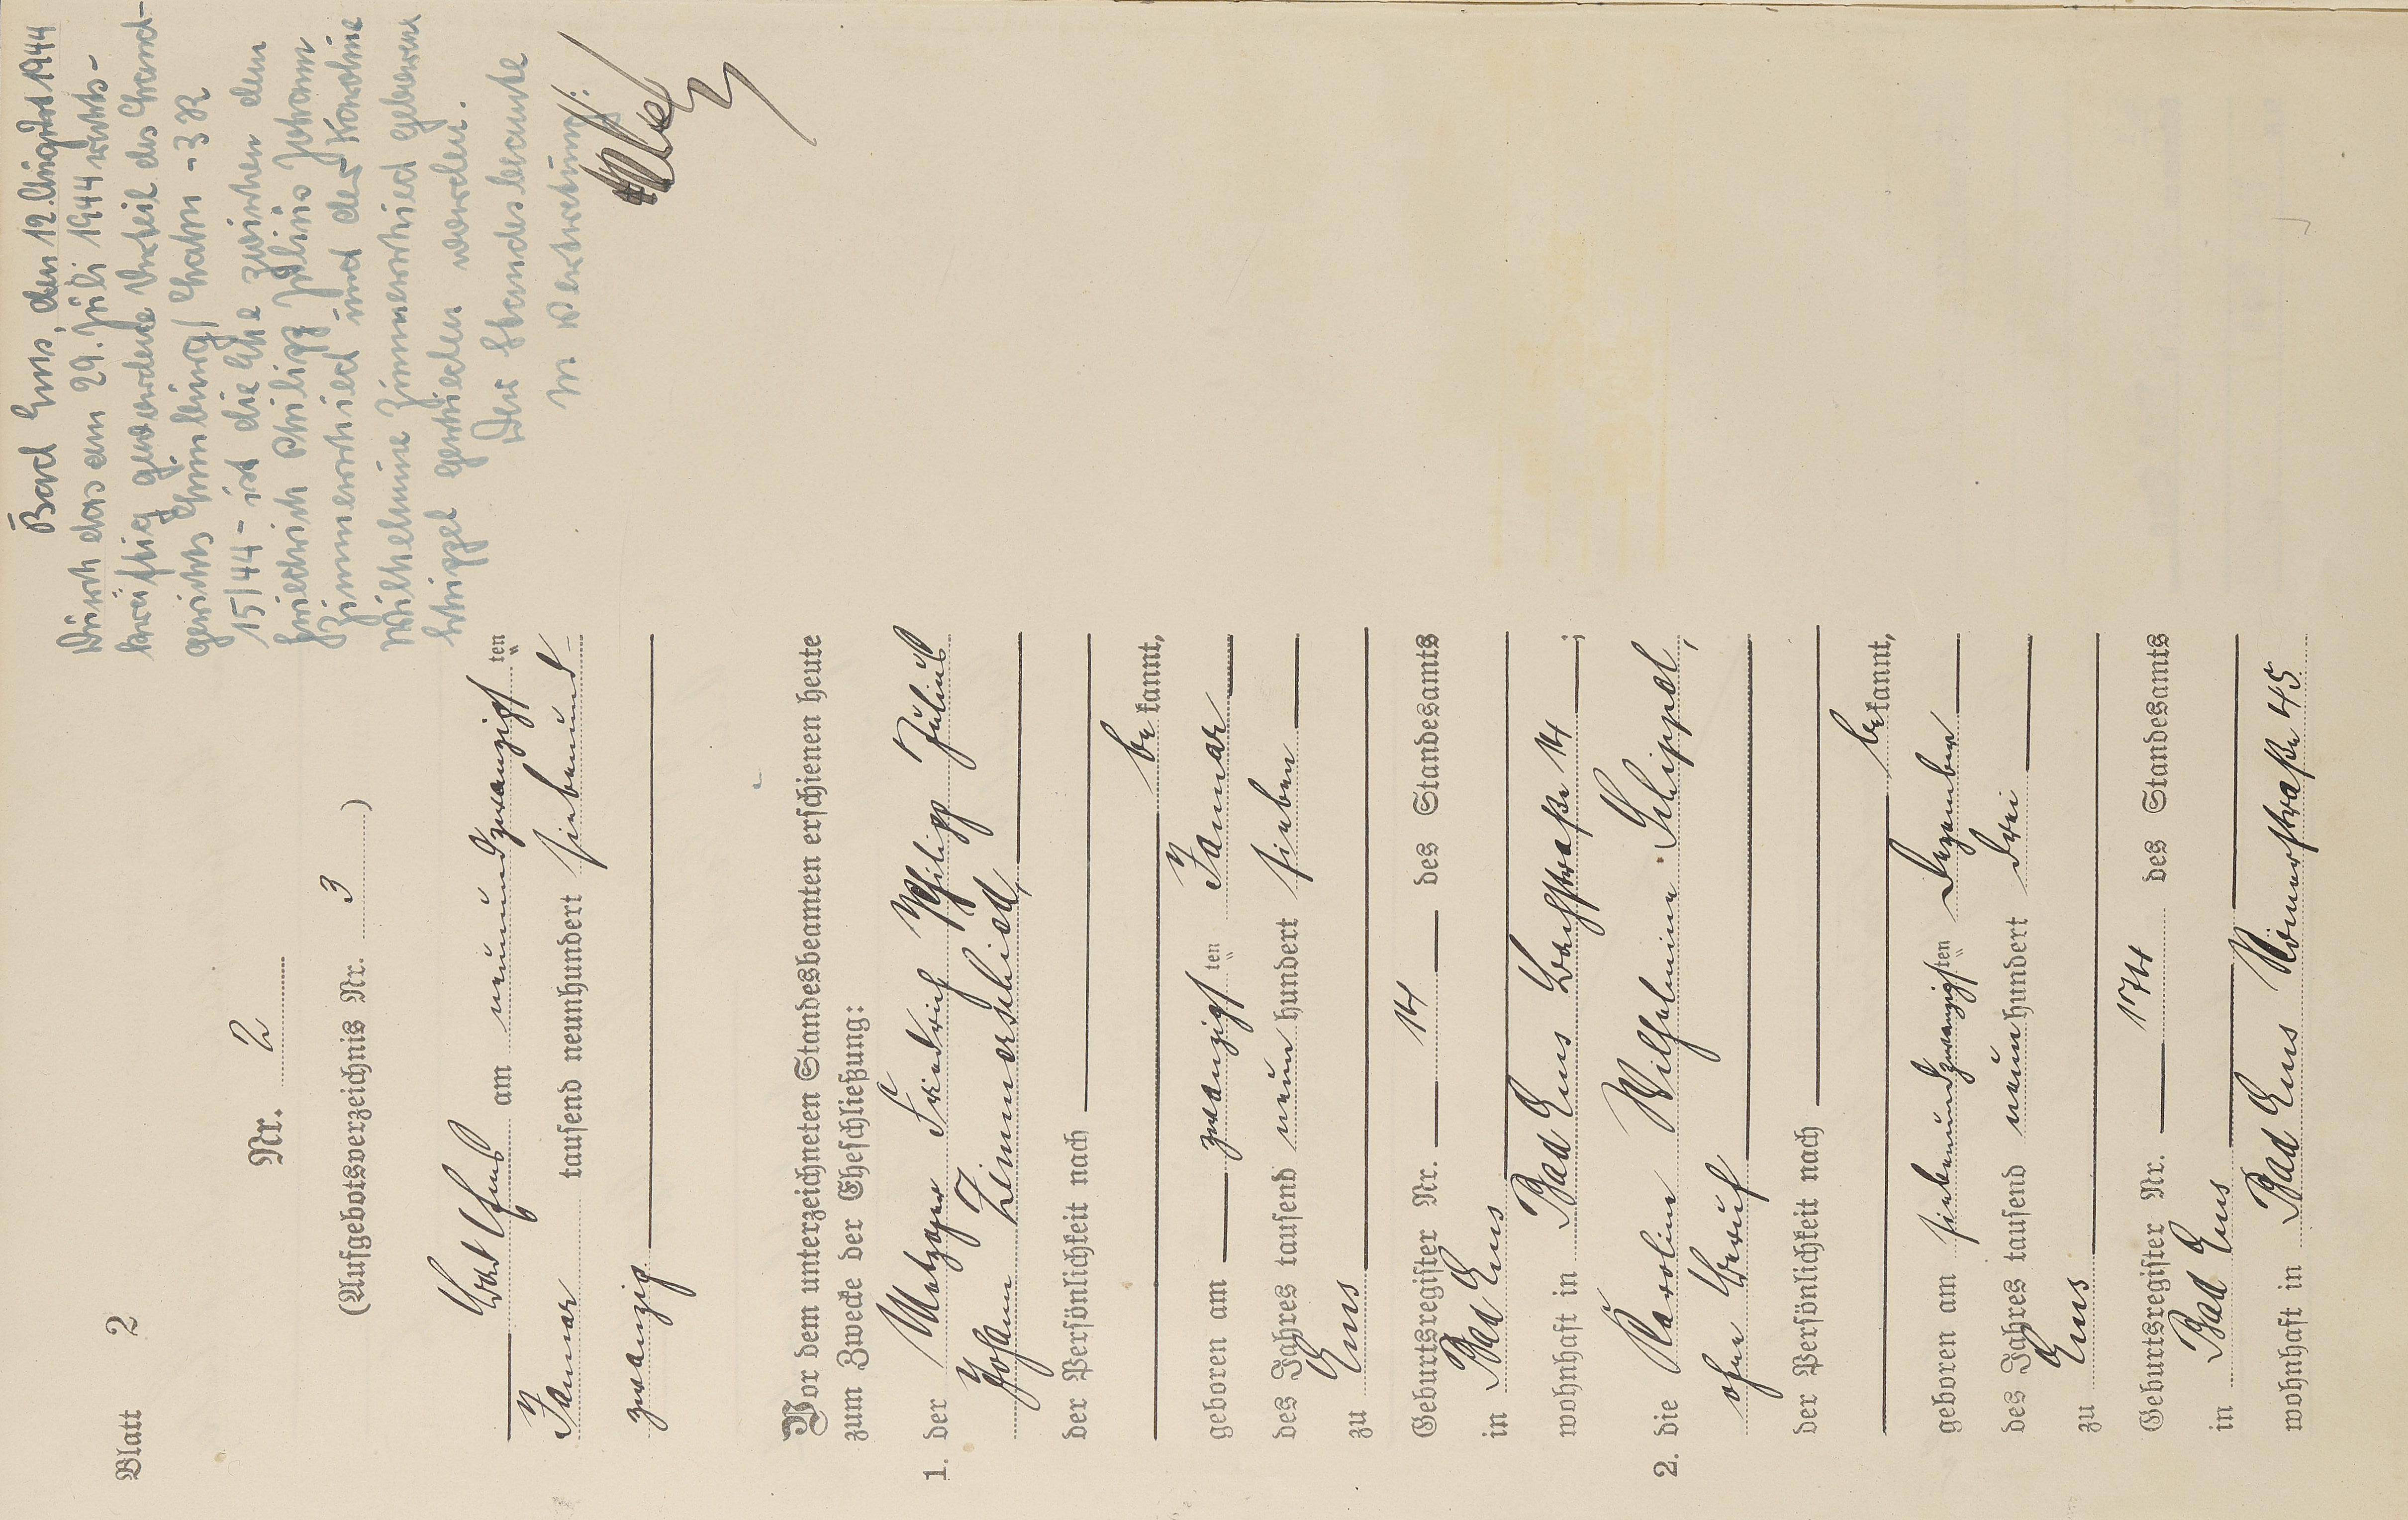 Blatt 2
Nr. 2
(Aufgebotsverzeichnis Nr. 3)
Bad Ems am neunundzwanzigsten
Januar tausend neunhundert siebenund-
zwanzig
Vor dem unterzeichneten Standesbeamten erschienen heute
zum Zwecke der Eheschließung:
1. der Metzger Friedrich Philipp Julius
Johann Zimmerschied,
der Persönlichkeit nach
bekannt,
geboren am zwanzigsten Januar
des Jahres tausend neunhundert sieben
zu Ems
Geburtsregister Nr. 14 des Standesamts
in Bad Ems
wohnhaft in Bad Ems Bachstraße 14;
2. die Karoline Wilhelmine Schippel,
ohne Beruf
der Persönlichkeit nach
bekannt,
geboren am siebenundzwanzigsten Dezember
des Jahres tausend neunhundert drei
zu Ems
Geburtsregister Nr. 174 des Standesamts
in Bad Ems
wohnhaft in Bad Ems Römerstraße 45
Bad Ems, den 12. August 1944
Durch das am 29. Juli 1944 rechts-
kräftig gewordene Urteil des Land-
gerichts Limburg/Lahn - 3 R
15/44 - ist die Ehe zwischen dem
Friedrich Philipp Julius Johann
Zimmerschied und der Karoline
Wilhelmine Zimmerschied geborene
Schippel geschieden worden.
Der Standesbeamte
In Vertretung: